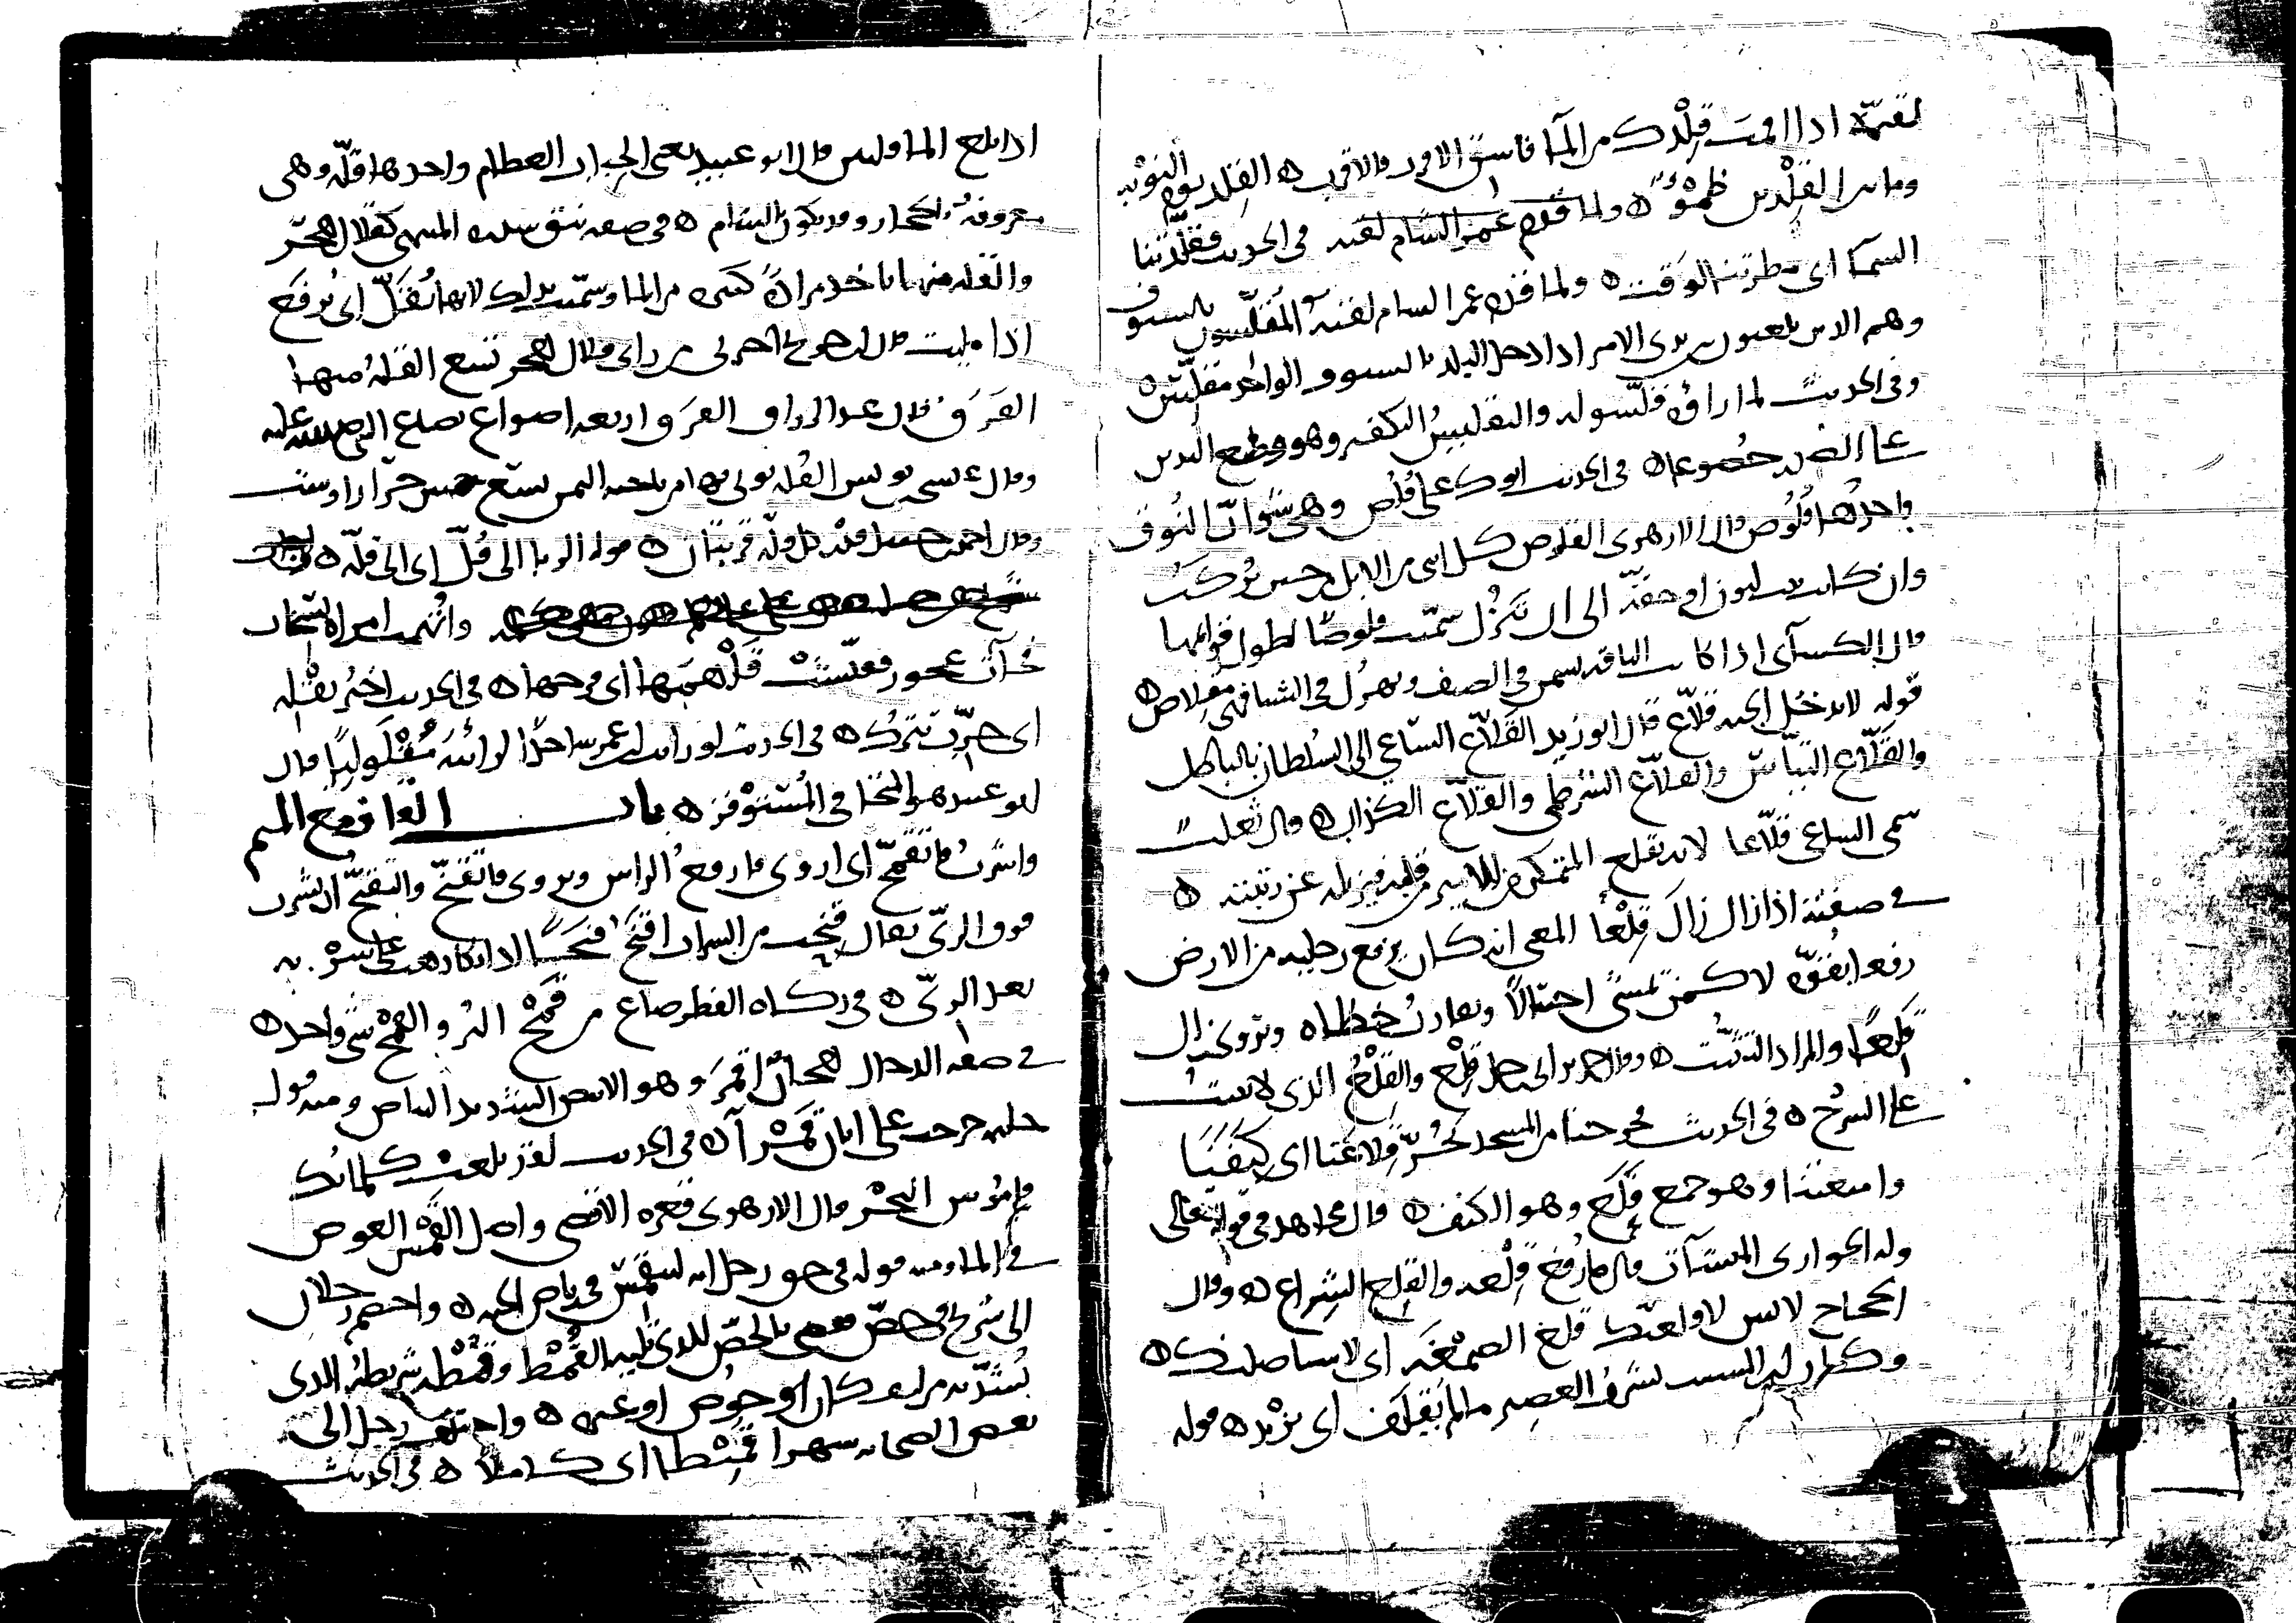 لقيّمه اذا اقمت قِلْدك من الماء فاسق الاقرب فالاقرب ٥ القِلد يوم النَوْبه
وما بين القِلْدين ظِمْوٌ ٥ ولما قدم عُمر الشام لقيه في الحديث فقلدتنا
السماء اي مطرتنا لوَقت ٥ ولما قدم عمر الشام لقيه المُقلّسون بالسيوف
وهم الذين يلعبون بين يدي الامير اذا دخل البلد بالسيوف الواحد مقلّس ٥
وفي الحديث لما راوه قلّسوا له والتقليس التكفير وهو وضع اليدين
على الصدر خضوعا ٥ في الحديث اتوك على قُلُص وهي شوابّ النوق
واحدتها قلُوص قال الازهري القلوص كل انثى من الابل من حين تركب
وان كانت بنت لبون او حقة الى ان تَبْزُل سمّيت قلوصًا لطول قوائمها
قال الكسائي اذا كانت الناقة تسمن في الصيف وتهزل في الشتاء فهي مقلاص ٥
قوله لا يدخل الجنه قلاّع قال ابو زيد القلاّع الساعي الى السلطان بالباطل
والقلاّع النبّاش والقلاّع الشرطي والقلاّع الكذاب ٥ قال ثعلب
سمى الساعي قلاّعا لانه يقلع المتمكن من الامير من قلبه فيزيله عن رتبته ٥
في صفته اذا زال زال قلْعًا المعنى انه كان يرفع رجليه من الارض
رفعا بقوّه لا كمن يمشي اختيالاً ويقارب خطاه ويروى زال
قَلِعًا والمراد التثبت ٥ وقال جرير اني رجل قِلْع والقلْع الذي لا يثبت
على السرج ٥ في الحديث فخرجنا من المسجد نجُرّ قلاعَنا اي كِنْفَنَا
وامتعتنا وهو جمع قَلْع وهو الكنف ٥ قال مجاهد في قوله تعالى
وله الجواري المنشآت قال ما رُفع قِلْعه والقلع الشراع ٥ وقال
الحجاج لانس لاقلعنّك قلع الصمغه اي لاستاصلنك ٥
وكان ابن المسيب يشرب العصير ما لم يَقْلِف اي يزبد ٥ قوله
اذا بلغ الماء قلتين قال ابو عبيد يعني الحباب العظام واحدها قلّه وهي
معروفة بالحجاز وقد يكون بالشام ٥ في صفه نبق سدره المنتهى كقلال هجر
والقله منها تاخذ مزادة كبيره من الماء وسمّيت بذلك لانها تُقَلّ اي تُرفَع
اذا مليت قال ابن جريج اخبرني من راى قلال هجر تسع القلة منها
الفَرَق قال عبد الرزاق الفرَق اربعه اصواع بصاع النبي صلى الله عليه
وقال عيسى بن يونس القله يوتى بها من ناحيه اليمن تسع خمس جرار او ست
وقال احمد بن حنبل قدر كل قلّه قربتان ٥ قوله الربا الى قُلّ اي الى قلّه ٥
واتُهمت امراه بسخاب
فتاة فجاءت عجوز ففتّشت قَلْهَمَها اي فرجها ٥ في الحديث اخبُر تقْله
اي جرّب تترك ٥ في الحديث لو رايت ابن عمر ساجدًا لرايته مُقْلَوليًا قال
ابو عبيد هو المتجافي المُستوْفز ٥ باب القاف مع الميم
واشرب فاتقمّح اي اروى فارفع الراس ويروى فاتقنّح والتقنّح ان يشرب
فوق الريّ يقال قنحت من الشراب اقنح قنحًا اذا تكارهت على شربه
بعد الريّ ٥ في زكاه الفطر صاع من قَمْح البُر والقمح شي واحد ٥
في صفه الدجال هجان اقمَر وهو الابيض الشديد البياض ومنه قول
حليمه خرجت على اتان قَمْرآء ٥ في الحديث لقد بلغت كلماتك
قاموس البحر قال الازهري قعره الاقصى واصل القَمْس الغوص
في الماء ومنه قوله في حق رجل انه لينقمس في رياض الجنه ٥ واختصم رجلان
الى شريح في خصّ فقضى بالخصّ للذي تليه القُمُط وقُمُطه شريطه الذي
يُشدّ به من ليف كان او خوص او غيره ٥ واختلف رجل الى
بعض الصحابه شهرا قميطا اي كاملاً ٥ في الحديث